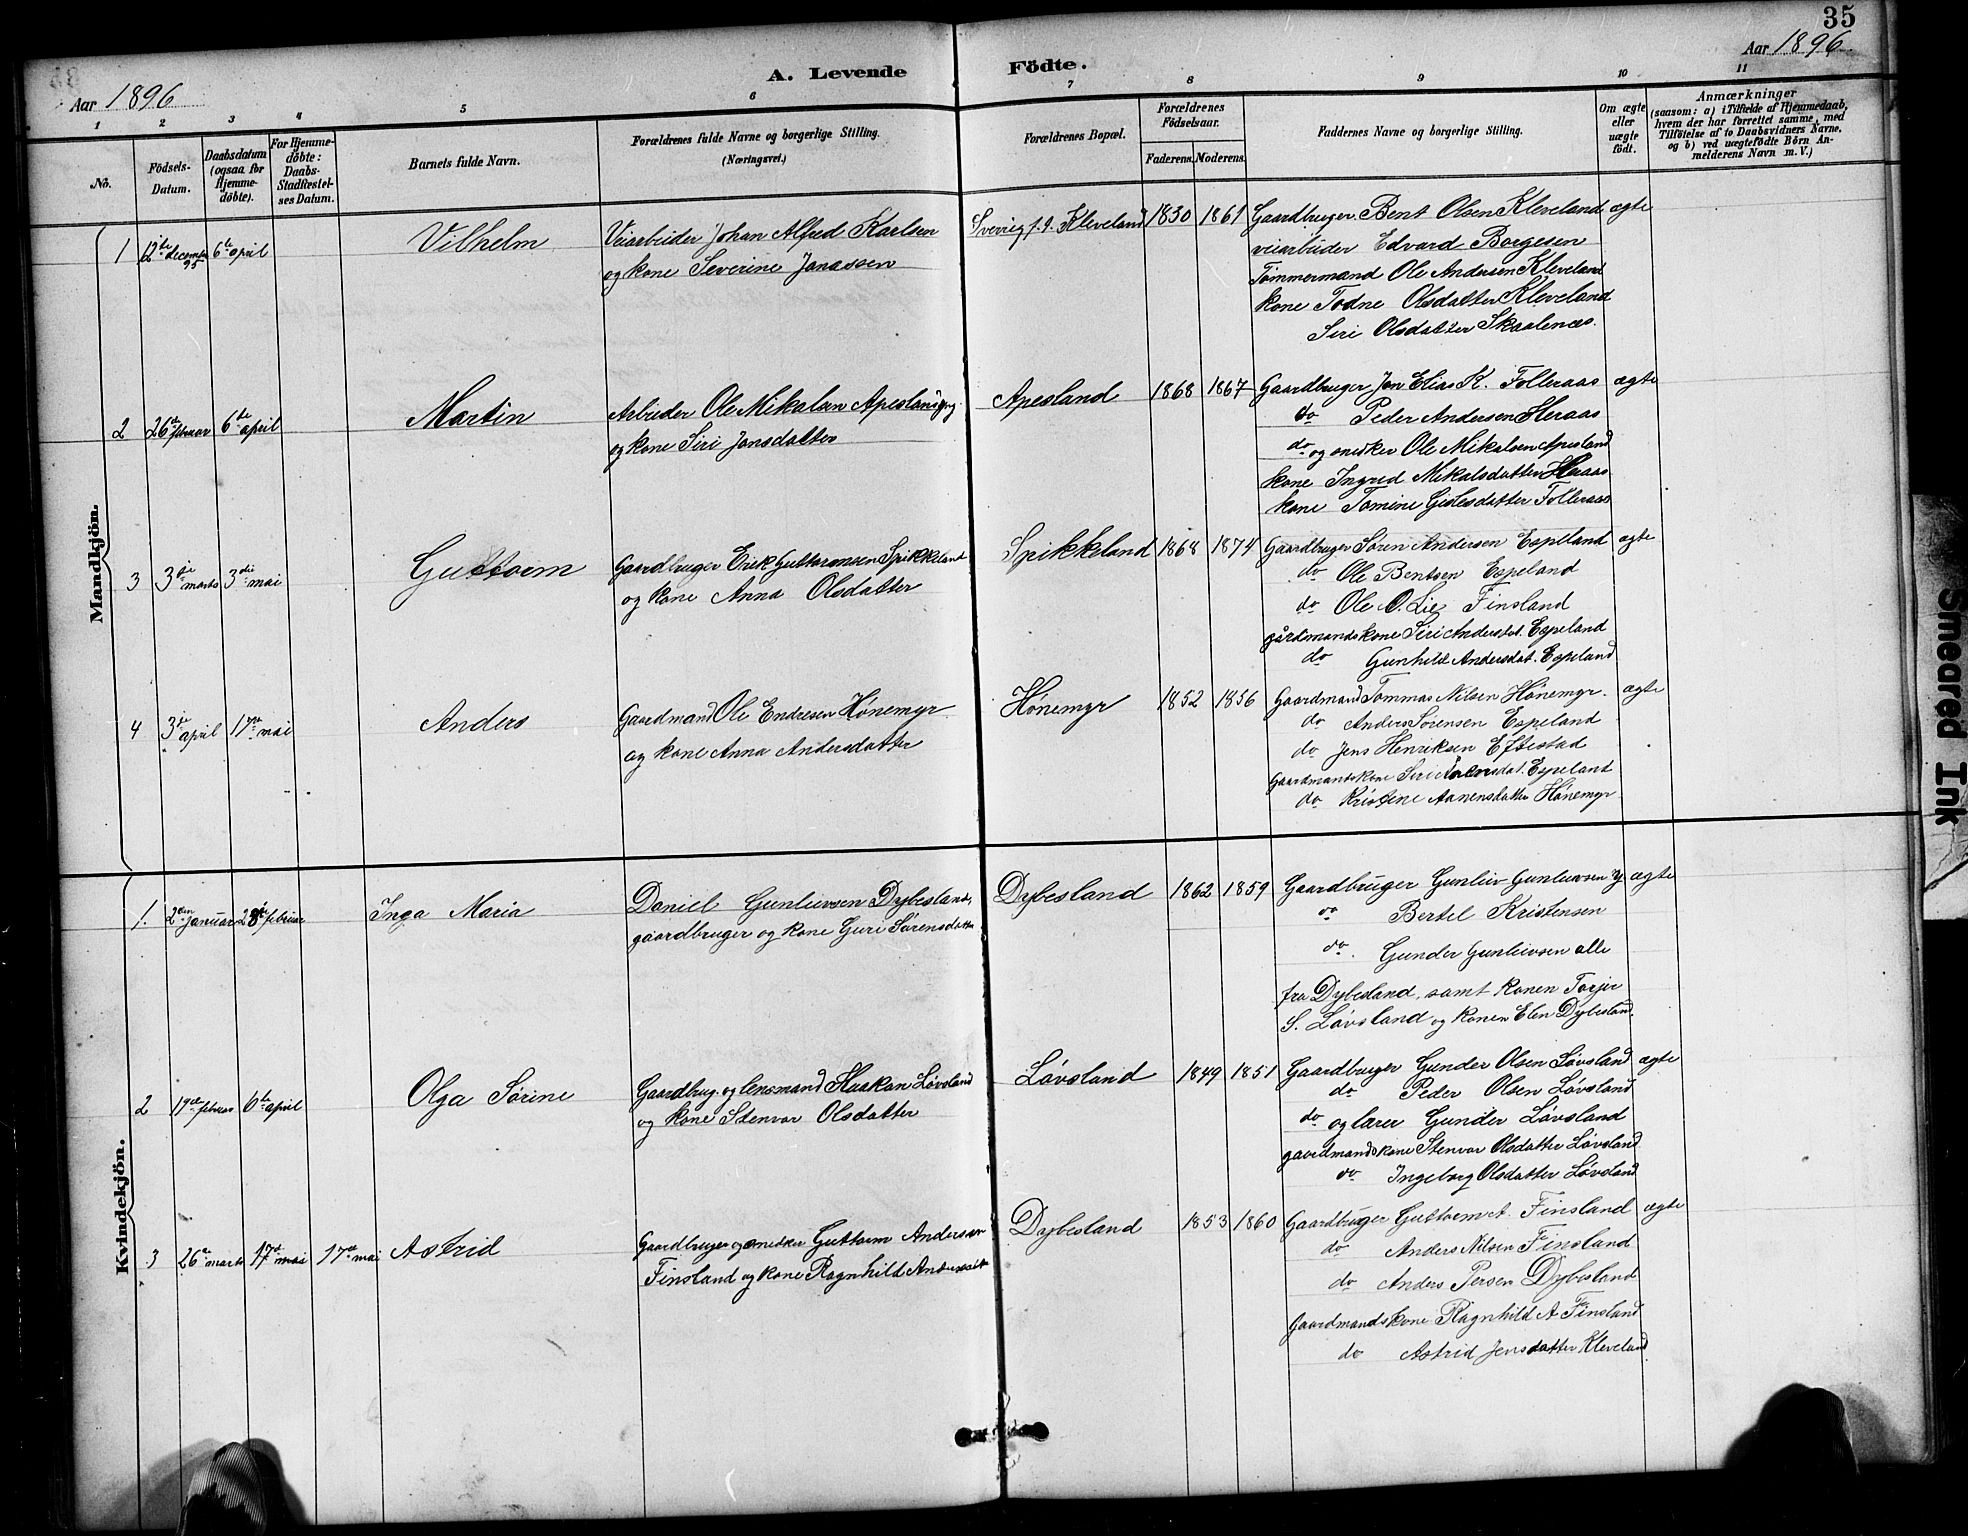 35
Aar 1896
A. Levende Födte.
Aar 1896.
1 2 3 4 5 6 7 8 9 10 11
No.
Födsels-Datum.
Daabsdatum (ogsaa for Hjemme-döbte).
For Hjemme-döbte: Daabs-Stadfæstel-ses Datum.
Barnets fulde Navn.
Forældrenes fulde Navne og borgerlige Stilling.
(Næringsvei.)
Forældrenes Bopæl.
Forældrenes Födselsaar.
Faderens. Moderens.
Faddernes Navne og borgerlige Stilling.
Om ægte eller uægte födt.
Anmærkninger
(saasom: a) i Tilfælde af Hjemmedaab, hvem der har forrettet samme, med Tilföielse af to Daabsvidners Navne. og b) ved uægtefödte Börn Anmelderens Navn m. V.)
Mandkjön.
1 12te december 95 6te april Vilhelm
Veiarbeider Johan Alfred Karlsen
og kone Severine Janassen
Sverrig f. t. Kleveland 1830 1861
Gaardbruger Bent Olsen Kleveland ægte
veiarbeider Edvard Borgesen
Tømmermand Ole Andersen Kleveland
kone Todne Olsdatter Kleveland
Siri Olsdatter Skaalenæs.
2 26de februar 6te april Martin
Arbeider Ole Mikalsen Apesland
og kone Siri Jonsdatter
Apesland 1868 1867
Gaardbruger Jon Elias K. Folleraas ægte
do Peder Andersen Heraas
do og snedker Ole Mikalsen Apesland
kone Ingred Mikalsdatter Heraas
kone Tomine Gislesdatter Folleraas
3 3die marts 3die mai Guttorm
Gaardbruger Erik Guttormsen Spikkeland
og kone Anna Olsdatter
Spikkeland 1868 1874
Gaardbruger Søren Andersen Espeland ægte
do Ole Bentsen Espeland
do Ole O. Lie Finsland
gårdmandskone Siri Andersdat. Espeland
do Gunhild Andersdat. Espeland
4 3die april 17de mai Anders
Gaardmand Ole Endresen Hønemyr
og kone Anna Andersdatter
Hønemyr 1852 1856
Gaardmand Tommas Nilsen Hønemyr. ægte
do Anders Sørensen Espeland
do Jens Henriksen Eftestad
Gaardmandskone Siri Espeland
do Kristine Aanensdatter Hønemyr
Kvindekjön.
1. 2den januar 23de februar Inga Maria
Daniel Gunleivsen Dybesland,
gaardbruger og kone Guri Sørensdatter
Dybesland 1862 1859
Gaardbruger Gunleiv Gunleivsen y ægte
do Bertel Kristensen
do. Gunder Gunleivsen alle
fra Dybesland, samt konen Torjer
S. Løvsland og konen Elen Dybesland.
2 19de februar 6te april Olga Sørine
Gaardbrug. og lensmand Haakon Løvsland
og kone Stenvor Olsdatter
Løvsland 1849 1851
Gaardbruger Gunder Olsen Løvsland ægte
do Peder Olsen Løvsland
do og lærer Gunder Løvsland
gaardmandskone Stenvor Olsdatter Løvsland
do Ingeborg Olsdatter Løvsland
3 26de marts 17de mai 17de mai Astrid
Gaardbruger og snedker Guttorm Andersen
Finsland og kone Ragnhild Andersdatter
Dybesland 1853 1860
Gaardbruger Guttorm A. Finsland ægte
do Anders Nilsen Finsland
do Anders Persen Dybesland
Gaardmandskone Ragnhild A. Finsland
do Astrid Jensdatter Kleveland.
Smeared Ink